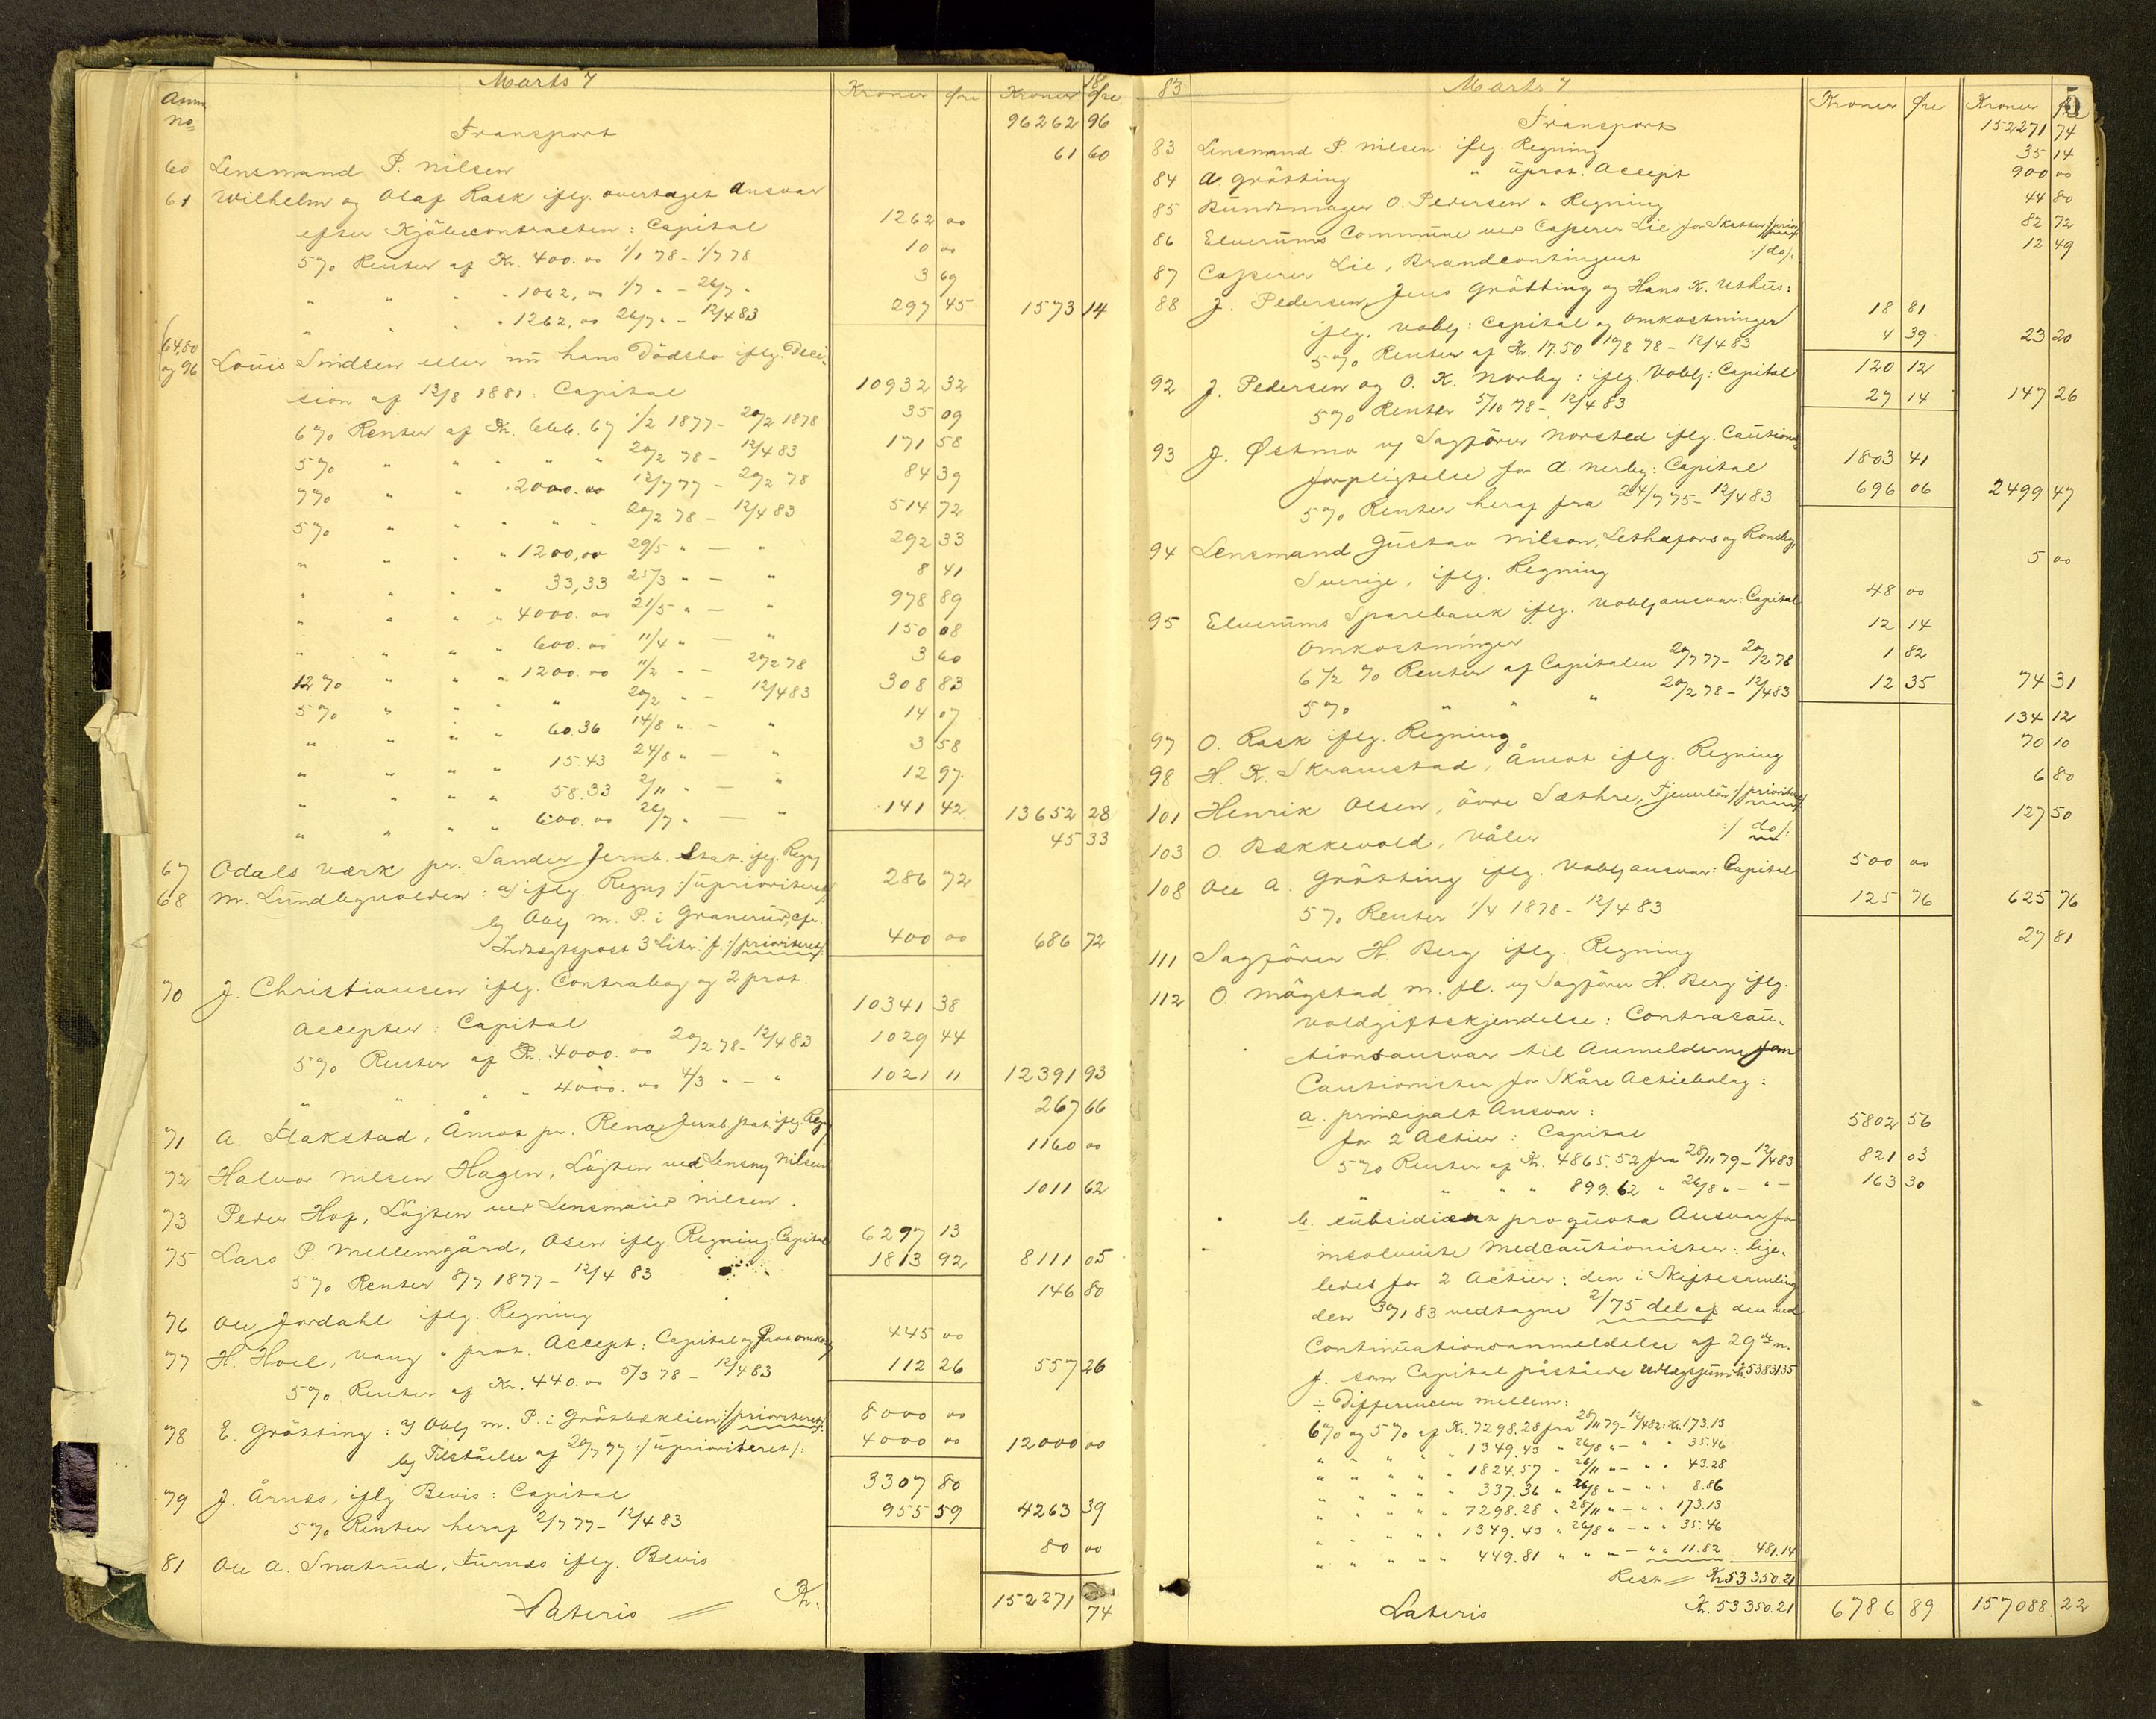 Marts 7 Kroner Øre Kroner 18 Øre
Anm No
Transport 96262 96
60 Lensmand P. Nilsen 61 60
61 Wilhelm og Olaf Rask iflg. overtaget Ansvar
efter Kjöbecontracten: Capital 1262 00
5% Renter af Kr. 400.00 1/1 78 - 1/7 78 10 00
" " " " 1062,00 1/7 " - 26/7 " 3 69
" " " " 1262,00 26/7 " - 12/4 83 297 45 1573 14
64,80 og 96 Louis Smidsen eller nu hans Dödsbo iflg. Deci-
sion af 13/8 1881: Capital 10932 32
6% Renter af Kr. 666.67 1/2 1877 - 20/2 1878 35 09
5% " " " " " 20/2 78 - 12/4 83 171 58
7% " " " 2000.00 12/7 77 - 20/2 78 84 39
5% " " " " " 20/2 78 - 12/4 83 514 72
" " " " 1200,00 29/5 " - " 292 33
" " " " 33,33 25/3 " - " 8 41
" " " " 4000.00 21/5 " - " 978 89
" " " " 600.00 11/4 " - " 150 08
12% " " " 1200.00 11/2 " - 20/2 78 3 60
5% " " " " 20/2 " - 12/4 83 308 83
" " " " 60.36 14/8 " - " 14 07
" " " " 15.43 24/8 " - " 3 58
" " " " 58.33 2/11 " - " 12 97
" " " " 600.00 26/7 " - " 141 42 13652 28
67 Odals Værk pr. Sander Jernb. Stat. iflg. Regng 45 33
68 M. Lundbyvolden: a) iflg. Regng :/uprioriteret/: 286 72
b) Oblg m. P. i Granerud, cfr.
Indtægtspost 3 Litr. f. :/prioriteret/: 400 00 686 72
70 J. Christiansen iflg. Contrabog og 2 prot.
Accepter: Capital 10341 38
5% Renter af Kr. 4000.00 20/2 78 - 12/4 83 1029 44
" " " " 4000.00 4/3 " - " 1021 11 12391 93
71 A. Flakstad, Åmot pr. Rena Jernb. stat. iflg. Regng 267 66
72 Halvor Nilsen Hagen, Löjten ved Lensmd Nilsen 1160 00
73 Peder Hof, Löjten ved Lensmand Nilsen. 1011 62
75 Lars P. Mellemgård, Osen iflg. Regning: Capital 6297 13
5% Renter 8/7 1877 - 12/4 83 1813 92 8111 05
76 Ole Jordahl iflg. Regning 146 80
77 H. Hoel, Vang " prot. Accept: Capital og Prot.omkstg 445 00
5% Renter af Kr. 440.00 5/3 78 - 12/4 83 112 26 557 26
78 E. Grötting: a) Oblg m. P. i Grötbæklien :/prioriteret/: 8000 00
b) Tilståelse af 20/7 77 :/uprioriteret/: 4000 00 12000 00
79 J. Årnæs, iflg. Bevis: Capital 3307 80
5% Renter heraf 2/7 77 - 12/4 83 955 59 4263 39
81 Ole A. Snatrud, Furnæs iflg. Bevis 80 00
Lateris Kr: 152271 74
83 Marts 7 Kroner Øre Kroner Øre 5
Transport 152271 74
83 Lensmand P. Nilsen iflg. Regning 35 14
84 A. Grötting " uprot. Accept 900 00
85 Bundtmager O. Pedersen " Regning 44 80
86 Elverums Commune ved Casserer Lie for Skatter :/prior/: 82 72
87 Casserer Lie, Brandcontingent :/do/: 12 49
88 J. Pedersen, Jens Grötting og Hans K. Uthus:
iflg. Voblg: Capital og Omkostninger 18 81
5% Renter af Kr. 17.50 10/8 78 - 12/4 83 4 39 23 20
92 J. Pedersen og O. K. Norby: iflg. Voblg: Capital 120 12
5% Renter 5/10 78 - 12/4 83 27 14 147 26
93 J. Østmo v/ Sagförer Norsted iflg. Cautions-
forpligtelse for A. Nerby: Capital 1803 41
5% Renter heraf fra 24/7 75 - 12/4 83 696 06 2499 47
94 Lensmand Gustav Nilson, Lethafors og Ronsby,
Sverige, iflg. Regning 5 00
95 Elverums Sparebank iflg. Voblgansvar: Capital 48 00
Omkostninger 12 14
6 1/2 % Renter af Capitalen 20/7 77 - 20/2 78 1 82
5% " " " 20/2 78 - 12/4 83 12 35 74 31
97 O. Rask iflg. Regning 134 12
98 H. K. Skramstad, Åmot iflg. Regning 70 10
101 Henrik Olsen, övre Sæthre, Tjenerlön :/prioriteret/: 6 80
103 O. Bækkevold, Våler :/do/: 127 50
108 Ole A. Grötting iflg. Voblgansvar: Capital 500 00
5% Renter 1/4 1878 - 12/4 83 125 76 625 76
111 Sagförer H. Berg iflg. Regning 27 81
112 O. Mågstad m. fl. v/ Sagförer H. Berg iflg.
Voldgiftskjendelse: Contracau-
tionsansvar til Anmelderne som
Cautionister for Skåre Actiebolag:
a. principalt Ansvar:
for 2 Actier: Capital 5802 56
5% Renter af Kr. 4865.52 fra 28/11 79 - 12/4 83 821 03
" " " " 899.62 " 26/8 " - " - 163 30
b. subsidiært pro quota Ansvar for
insolvente Medcautionister: lige-
ledes for 2 Actier: den i Skiftesamling
den 30/1 83 vedtagne 2/75 del af den ved
Continuationsanmeldelse af 29de n.
f. som Capital påståede Udlægssum Kr. 53831.35
÷ Differencen mellem:
6% og 5% af Kr. 7298.28 fra 28/11 79 - 12/4 82: Kr. 173.13
" " " " " 1349.43 " 26/8 " - " " 35.46
" " " " " 1824.57 " 26/11 " - " " 43.28
" " " " " 337.36 " 26/8 " - " " 8.86
" " " " " 7298.28 " 28/11 " - " " 173.13
" " " " " 1349.43 " 26/8 " - " " 35.46
" " " " " 449.81 " " " - " " 11.82 481.14
Rest Kr. 53350.21
Lateris Kr. 53350.21 6786 89 157088 22